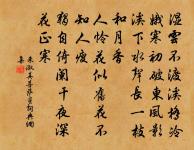 濕雲不渡溪橋冷
娥寒初破東風影
溪下水聲長一枝
和月香
人憐花似舊花不
知人瘦
獨自倚闌干夜深
花正寒
朱淑真菩薩蠻詞典網
集